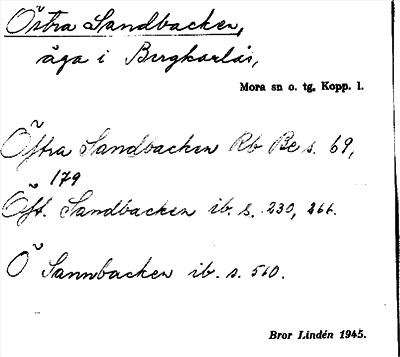 Östra Sandbacken,
äga i Bergkarlås,
Mora sn o. tg, Kopp. l.
Õstra Sandbacken Rb Be s. 69,
179
Õst. Sandbacken ib. s. 230, 266.
Õ Sannbacken ib. s. 510.
Bror Lindén 1945.